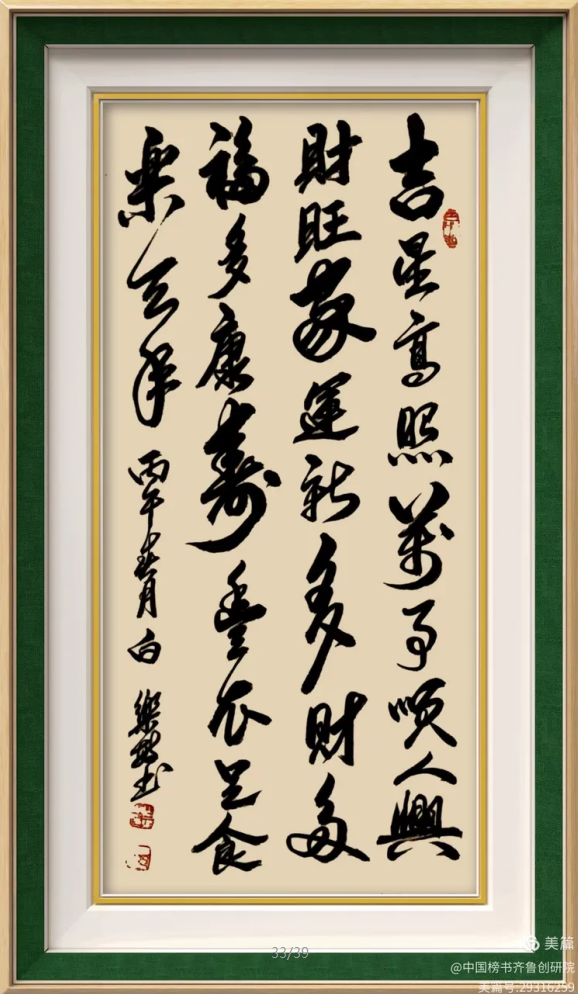 吉星高照萬事順人興
財旺家運新多財多
福多康壽豊衣足食
樂天年
丙午春月白樂珍书
33/39
美篇
@中国榜书齐鲁创研院
美篇号:29316259